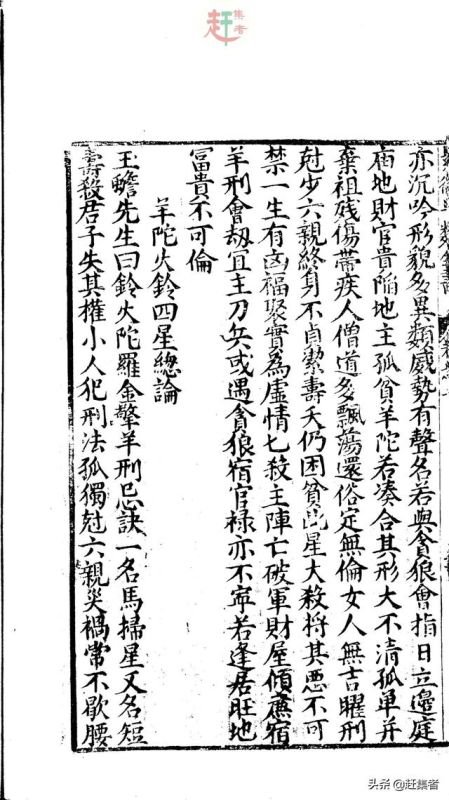 赶集者
亦沉吟形貌多異類威势有聲名若與貪狼會指日立邊庭
庙地財官貴陷地主孤貧羊陀若湊合其形大不清孤单并
棄祖殘傷帶疾人僧道多飄蕩還俗定無倫女人無吉曜刑
尅少六親終身不貞潔壽夭仍困貧此星大殺将其悪不可
禁一生有凶福聚實為虚情七殺主陣亡破軍財屋傾廉宿
羊刑會刼宜主刀兵或遇貪狼宿官禄亦不寧若逢居旺地
冨貴不可倫
羊陀火鈴四星總論
玉蟾先生曰鈴火陀羅金擎羊刑忌訣一名馬掃星又名短
壽殺君子失其權小人犯刑法孤獨尅六親災禍常不歇腰
头条 @赶集者